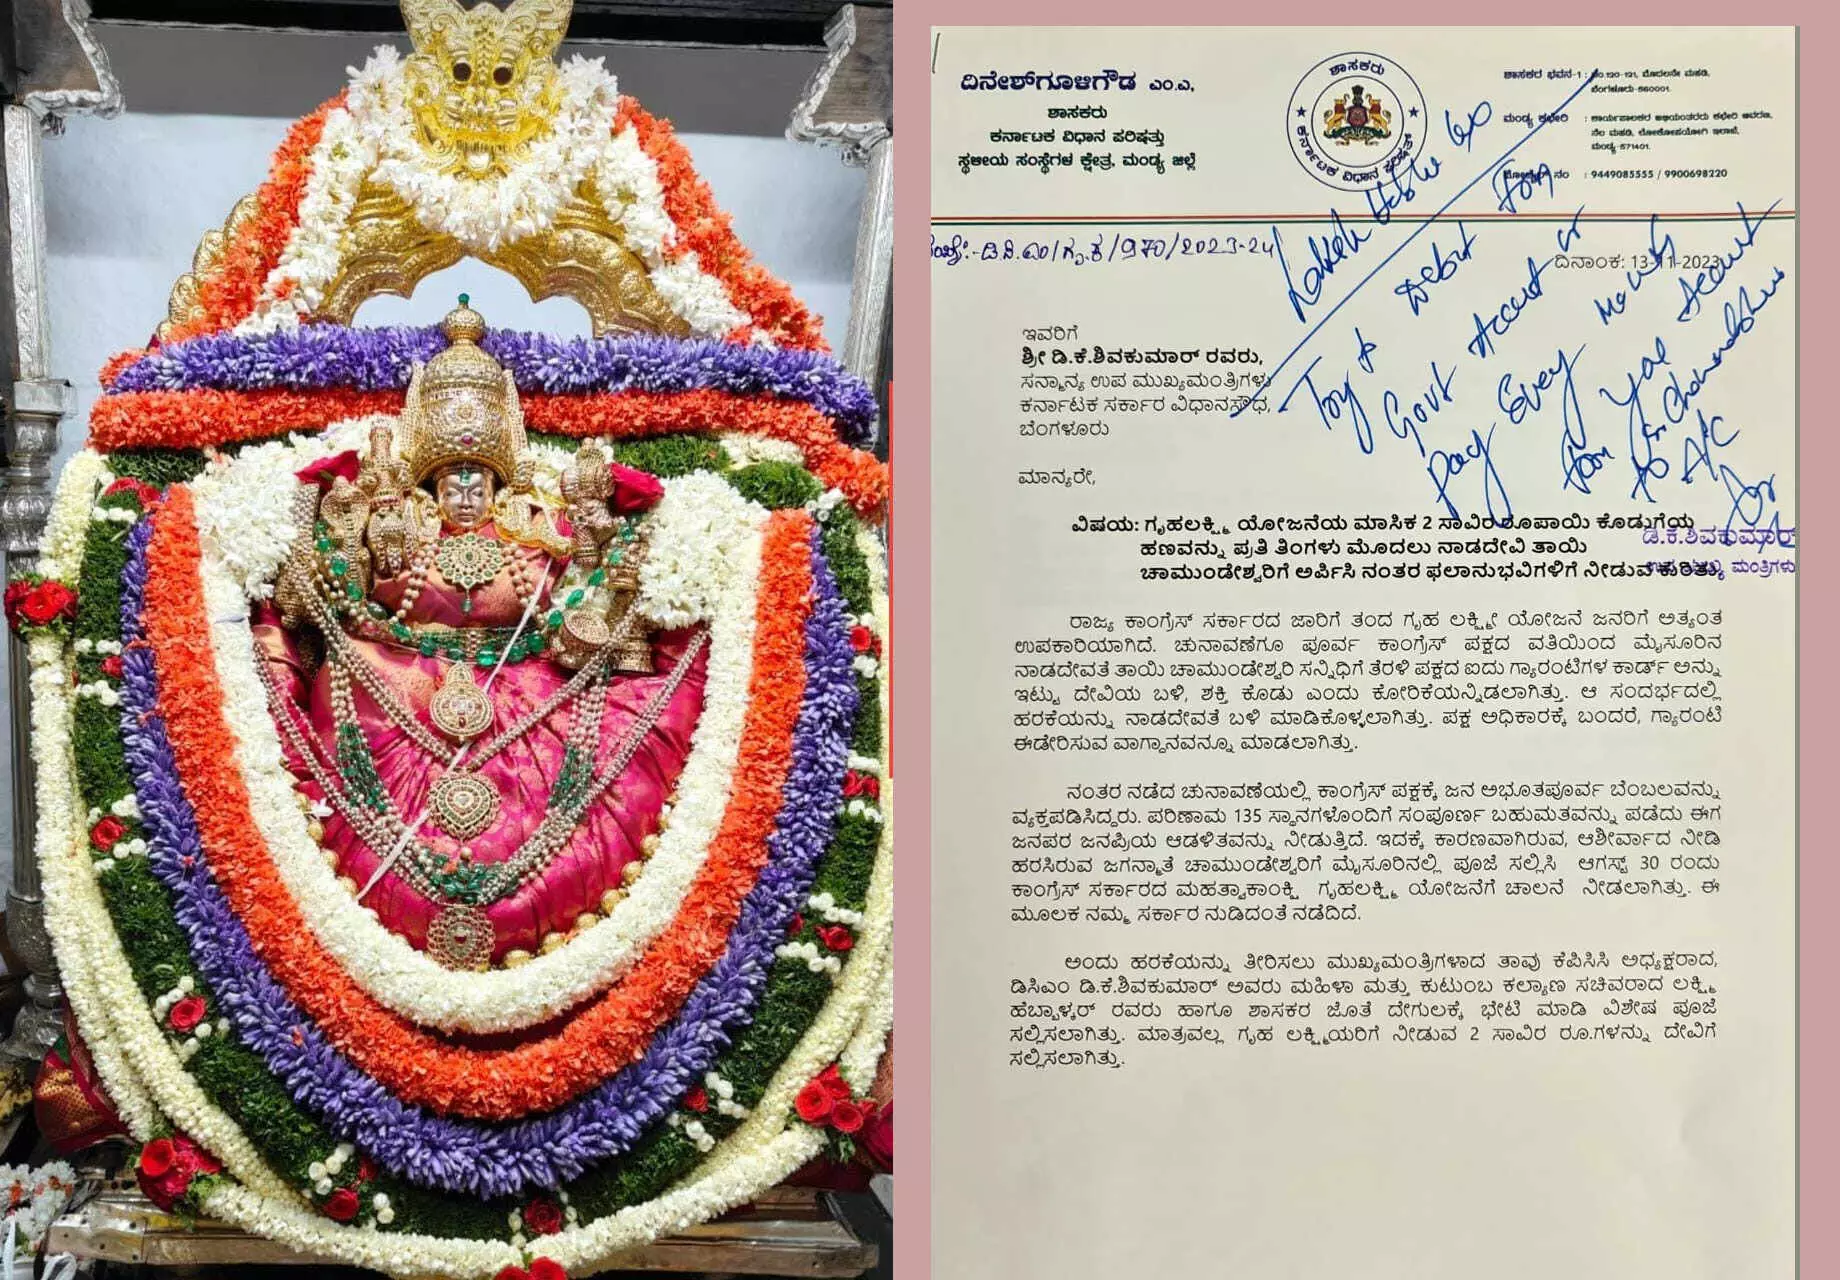 ದಿನೇಶ್‌ಗೂಳಿಗೌಡ ಎಂ.ಎ,
ಶಾಸಕರು
ಕರ್ನಾಟಕ ವಿಧಾನ ಪರಿಷತ್ತು
ಸ್ಥಳೀಯ ಸಂಸ್ಥೆಗಳ ಕ್ಷೇತ್ರ, ಮಂಡ್ಯ ಜಿಲ್ಲೆ
ಶಾಸಕರು
ಕರ್ನಾಟಕ ವಿಧಾನ ಪರಿಷತ್
ಶಾಸಕರ ಭವನ-1 : ನಂ.120-121, ಮೊದಲನೇ ಮಹಡಿ,
ಬೆಂಗಳೂರು-560001.
ಮಂಡ್ಯ ಕಛೇರಿ : ಕಾರ್ಯಪಾಲಕರ ಅಭಿಯಂತರರು ಕಛೇರಿ ಆವರಣ,
ನೆಲ ಮಹಡಿ, ಲೋಕೋಪಯೋಗಿ ಇಲಾಖೆ,
ಮಂಡ್ಯ-571401.
ಮೊಬೈಲ್ ನಂ : 9449085555 / 9900698220
/970/2023-24
ದಿನಾಂಕ: 13-11-2023
Debit from
Govt Account or
Pay Every Month
from Account
to A/c
ಇವರಿಗೆ
ಶ್ರೀ ಡಿ.ಕೆ.ಶಿವಕುಮಾರ್ ರವರು,
ಸನ್ಮಾನ್ಯ ಉಪ ಮುಖ್ಯಮಂತ್ರಿಗಳು
ಕರ್ನಾಟಕ ಸರ್ಕಾರ ವಿಧಾನಸೌಧ,
ಬೆಂಗಳೂರು
ಮಾನ್ಯರೇ,
ವಿಷಯ: ಗೃಹಲಕ್ಷ್ಮಿ ಯೋಜನೆಯ ಮಾಸಿಕ 2 ಸಾವಿರ ರೂಪಾಯಿ ಕೊಡುಗೆಯ
ಹಣವನ್ನು ಪ್ರತಿ ತಿಂಗಳು ಮೊದಲು ನಾಡದೇವಿ ತಾಯಿ
ಚಾಮುಂಡೇಶ್ವರಿಗೆ ಅರ್ಪಿಸಿ ನಂತರ ಫಲಾನುಭವಿಗಳಿಗೆ ನೀಡುವ ಕುರಿತು.
ಡಿ.ಕೆ.ಶಿವಕುಮಾರ್
ಉಪ ಮುಖ್ಯ ಮಂತ್ರಿಗಳು
ರಾಜ್ಯ ಕಾಂಗ್ರೆಸ್ ಸರ್ಕಾರದ ಜಾರಿಗೆ ತಂದ ಗೃಹ ಲಕ್ಷ್ಮೀ ಯೋಜನೆ ಜನರಿಗೆ ಅತ್ಯಂತ
ಉಪಕಾರಿಯಾಗಿದೆ. ಚುನಾವಣೆಗೂ ಪೂರ್ವ ಕಾಂಗ್ರೆಸ್ ಪಕ್ಷದ ವತಿಯಿಂದ ಮೈಸೂರಿನ
ನಾಡದೇವತೆ ತಾಯಿ ಚಾಮುಂಡೇಶ್ವರಿ ಸನ್ನಿಧಿಗೆ ತೆರಳಿ ಪಕ್ಷದ ಐದು ಗ್ಯಾರಂಟಿಗಳ ಕಾರ್ಡ್ ಅನ್ನು
ಇಟ್ಟು ದೇವಿಯ ಬಳಿ, ಶಕ್ತಿ ಕೊಡು ಎಂದು ಕೋರಿಕೆಯನ್ನಿಡಲಾಗಿತ್ತು. ಆ ಸಂದರ್ಭದಲ್ಲಿ
ಹರಕೆಯನ್ನು ನಾಡದೇವತೆ ಬಳಿ ಮಾಡಿಕೊಳ್ಳಲಾಗಿತ್ತು. ಪಕ್ಷ ಅಧಿಕಾರಕ್ಕೆ ಬಂದರೆ, ಗ್ಯಾರಂಟಿ
ಈಡೇರಿಸುವ ವಾಗ್ದಾನವನ್ನೂ ಮಾಡಲಾಗಿತ್ತು.
ನಂತರ ನಡೆದ ಚುನಾವಣೆಯಲ್ಲಿ ಕಾಂಗ್ರೆಸ್ ಪಕ್ಷಕ್ಕೆ ಜನ ಅಭೂತಪೂರ್ವ ಬೆಂಬಲವನ್ನು
ವ್ಯಕ್ತಪಡಿಸಿದ್ದರು. ಪರಿಣಾಮ 135 ಸ್ಥಾನಗಳೊಂದಿಗೆ ಸಂಪೂರ್ಣ ಬಹುಮತವನ್ನು ಪಡೆದು ಈಗ
ಜನಪರ ಜನಪ್ರಿಯ ಆಡಳಿತವನ್ನು ನೀಡುತ್ತಿದೆ. ಇದಕ್ಕೆ ಕಾರಣವಾಗಿರುವ, ಆಶೀರ್ವಾದ ನೀಡಿ
ಹರಸಿರುವ ಜಗನ್ಮಾತೆ ಚಾಮುಂಡೇಶ್ವರಿಗೆ ಮೈಸೂರಿನಲ್ಲಿ ಪೂಜೆ ಸಲ್ಲಿಸಿ ಆಗಸ್ಟ್ 30 ರಂದು
ಕಾಂಗ್ರೆಸ್ ಸರ್ಕಾರದ ಮಹತ್ವಾಕಾಂಕ್ಷಿ ಗೃಹಲಕ್ಷ್ಮಿ ಯೋಜನೆಗೆ ಚಾಲನೆ ನೀಡಲಾಗಿತ್ತು. ಈ
ಮೂಲಕ ನಮ್ಮ ಸರ್ಕಾರ ನುಡಿದಂತೆ ನಡೆದಿದೆ.
ಅಂದು ಹರಕೆಯನ್ನು ತೀರಿಸಲು ಮುಖ್ಯಮಂತ್ರಿಗಳಾದ ತಾವು ಕೆಪಿಸಿಸಿ ಅಧ್ಯಕ್ಷರಾದ,
ಡಿಸಿಎಂ ಡಿ.ಕೆ.ಶಿವಕುಮಾರ್ ಅವರು ಮಹಿಳಾ ಮತ್ತು ಕುಟುಂಬ ಕಲ್ಯಾಣ ಸಚಿವರಾದ ಲಕ್ಷ್ಮಿ
ಹೆಬ್ಬಾಳ್ಕರ್ ರವರು ಹಾಗೂ ಶಾಸಕರ ಜೊತೆ ದೇಗುಲಕ್ಕೆ ಭೇಟಿ ಮಾಡಿ ವಿಶೇಷ ಪೂಜೆ
ಸಲ್ಲಿಸಲಾಗಿತ್ತು. ಮಾತ್ರವಲ್ಲ ಗೃಹ ಲಕ್ಷ್ಮಿಯರಿಗೆ ನೀಡುವ 2 ಸಾವಿರ ರೂ.ಗಳನ್ನು ದೇವಿಗೆ
ಸಲ್ಲಿಸಲಾಗಿತ್ತು.